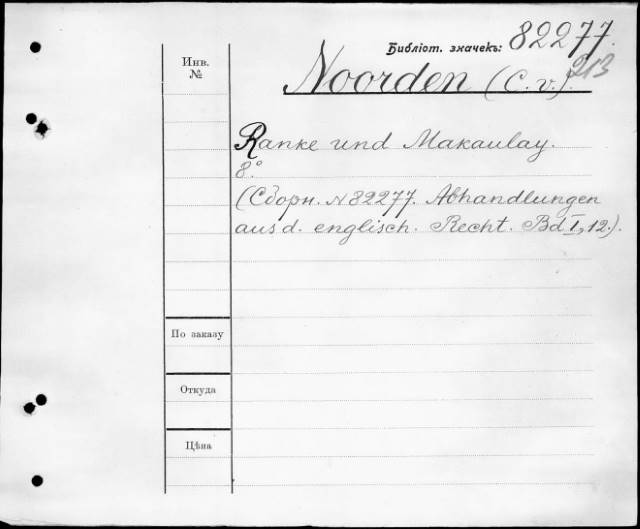 Библіот. значекъ: 82277.
213
Инв.
№
Noorden (C. v.).
Ranke und Makaulay.
8°.
(Сборн. N 82277. Abhandlungen
aus d. englisch. Recht. Bd I, 12.).
По заказу
Откуда
Цѣна